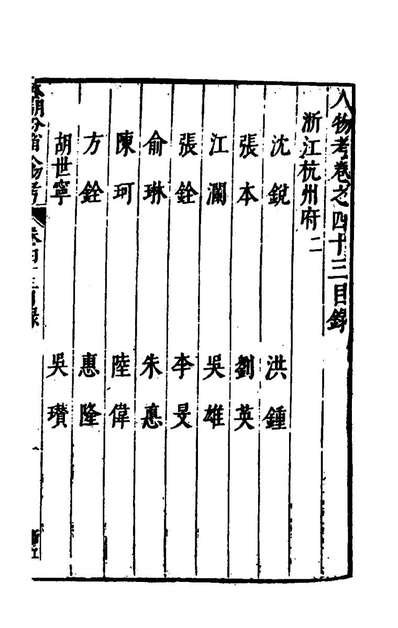 人物考卷之四十三目錄
浙江杭州府二
沈銳 洪鍾
張本 劉英
江瀾 吳雄
張銓 李旻
俞琳 朱惪
陳珂 陸偉
方銓 惠隆
胡世寧 吳瓚
本朝分省人物考 卷四十三目錄 一 浙江